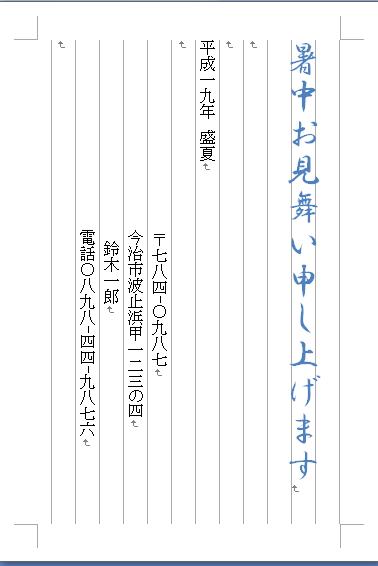 暑中お見舞い申し上げます
平成一九年　盛夏
〒七八四-〇九八七
今治市波止浜甲一二三の四
鈴木一郎
電話〇八九八-四四-九八七六